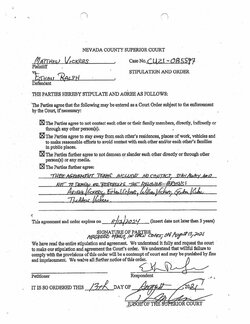 NEVADA COUNTY SUPERIOR COURT
MATTHEW VICKERS
Plaintiff
Case No. CU21-085597
vs.
STIPULATION AND ORDER
ETHAN RALPH
Defendant
THE PARTIES HEREBY STIPULATE AND AGREE AS FOLLOWS:
The Parties agree that the following may be entered as a Court Order subject to the enforcement
by the Court, if necessary:
The Parties agree to not contact each other or their family members, directly, indirectly or
through any other person(s).
The Parties agree to stay away from each other's residences, places of work, vehicles and
to make reasonable efforts to avoid contact with each other and/or each other's families
in public.
The Parties further agree to not demean or slander each other directly or through other
person(s) or any media.
The Parties further agree:
THESE AGREEMENT TERMS INCLUDE NO CONTACT, STAY AWAY AND
NOT TO DEMEAN OR
This agreement and order expires on 8/12/2024 (Insert date not later than 3 years)
SIGNATURE OF PARTIES
AGREEMENT MADE IN OPEN COURT, ON AUGUST 13, 2021
We have read the entire stipulation and agreement. We understand it fully and request the court
to make our stipulation and agreement the Court's order. We understand that willful failure to
comply with the provisions of this order will be a contempt of court and may be punished by fine
and imprisonment. We waive all further notice of this order.
Petitioner
Respondent
IT IS SO ORDERED THIS 13th DAY OF August 2021
JUDGE OF THE SUPERIOR COURT